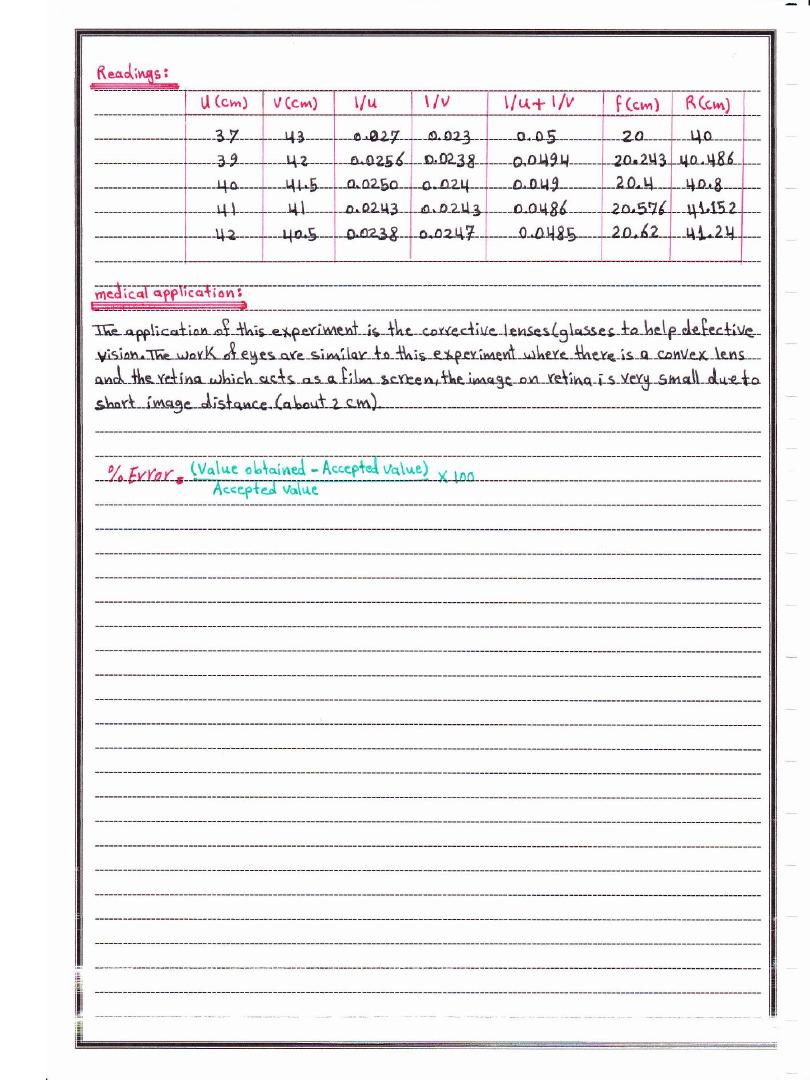 Readings:
U (cm) V (cm) 1/u 1/v 1/u + 1/v f (cm) R (cm)
37 43 0.027 0.023 0.05 20 40
39 42 0.0256 0.0238 0.0494 20.243 40.486
40 41.5 0.0250 0.024 0.049 20.4 40.8
41 41 0.0243 0.0243 0.0486 20.576 41.152
42 40.5 0.0238 0.0247 0.0485 20.62 41.24
medical application:
The application of this experiment is the corrective lenses (glasses to help defective
vision. The work of eyes are similar to this experiment where there is a convex lens
and the retina which acts as a film screen, the image on retina is very small due to
short image distance. (about 2 cm)
% Error = (Value obtained - Accepted value) x 100
Accepted value